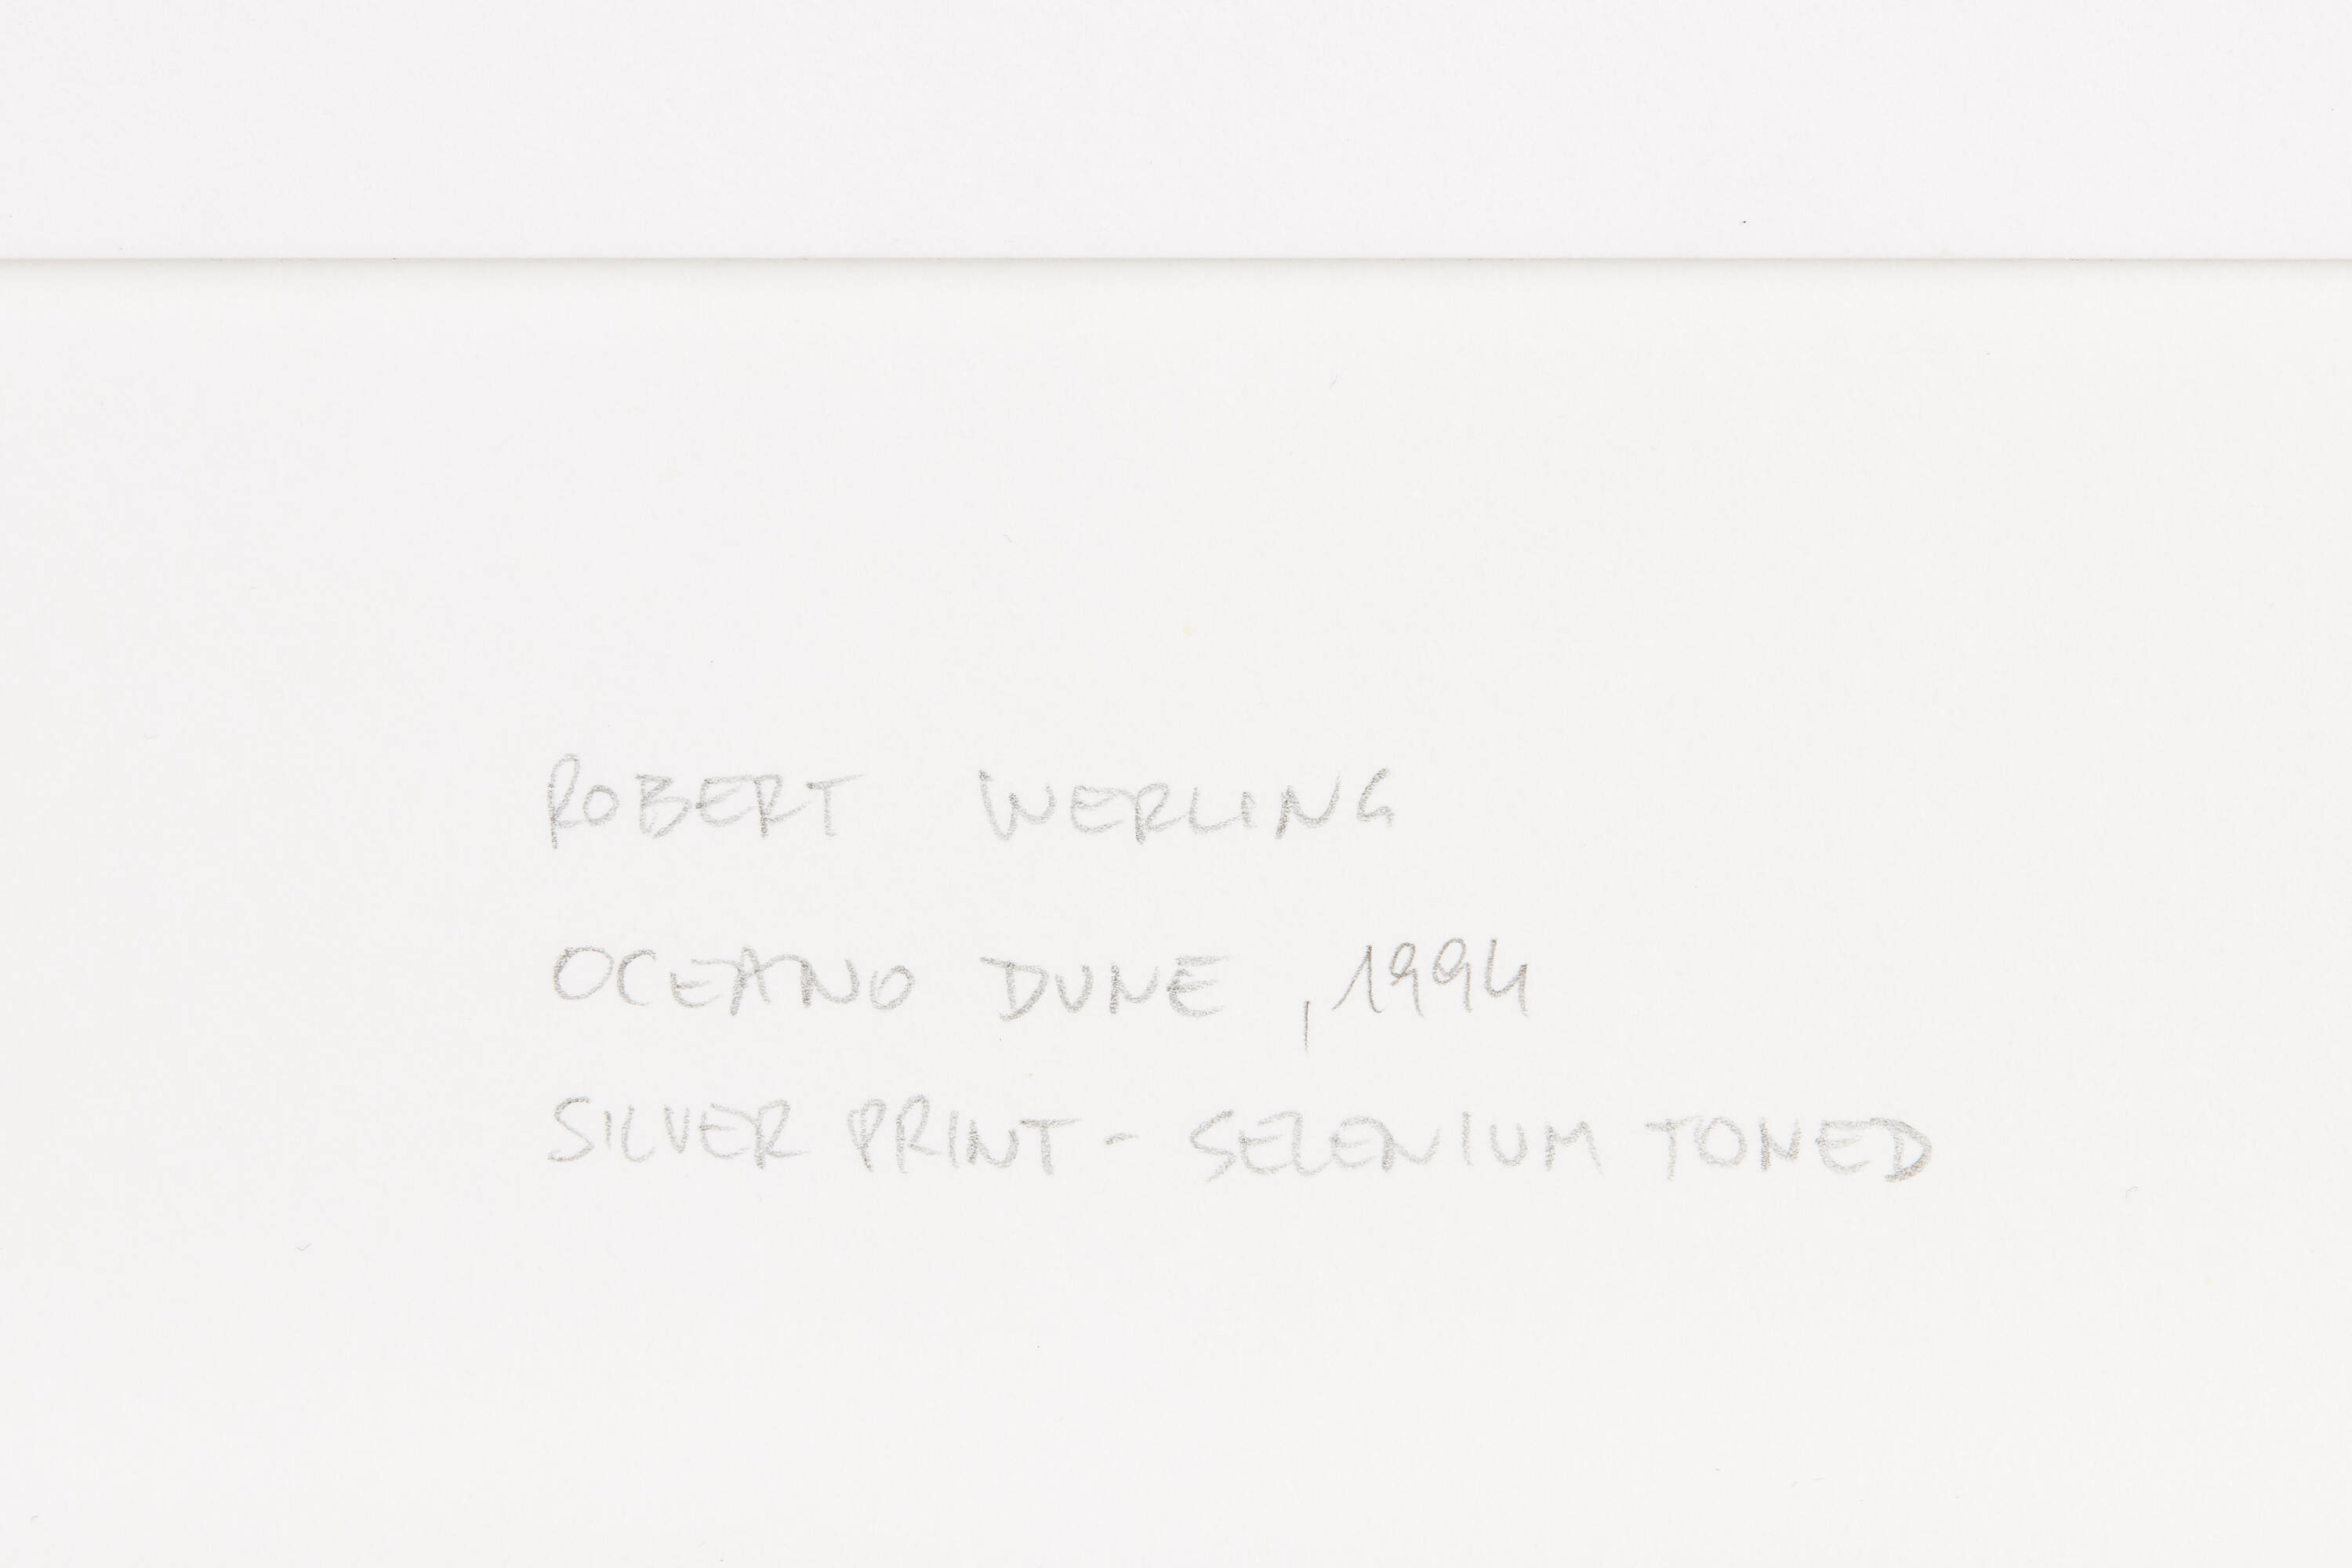 ROBERT WERLING
OCEANO DUNE, 1994
SILVER PRINT - SELENIUM TONED